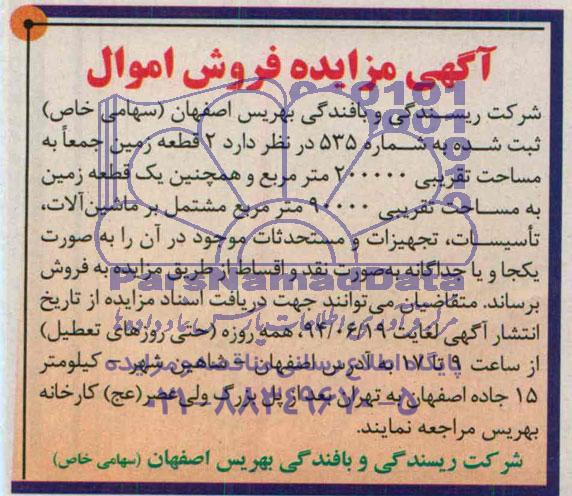 آگهی مزایده فروش اموال
شرکت ریسندگی و بافندگی بهریس اصفهان (سهامی خاص)
ثبت شده به شماره ۵۳۵ در نظر دارد ۲ قطعه زمین جمعاً به
مساحت تقریبی ۲۰۰۰۰۰ متر مربع و همچنین یک قطعه زمین
به مساحت تقریبی ۹۰۰۰۰ متر مربع مشتمل بر ماشین‌آلات،
تأسیسات، تجهیزات و مستحدثات موجود در آن را به صورت
یکجا و یا جداگانه به‌صورت نقد و اقساط از طریق مزایده به فروش
برساند. متقاضیان می‌توانند جهت دریافت اسناد مزایده از تاریخ
انتشار آگهی لغایت ۹۴/۰۶/۱۹، همه روزه (حتی روزهای تعطیل)
از ساعت ۹ تا ۱۷ به آدرس اصفهان - شاهین شهر - کیلومتر
۱۵ جاده اصفهان به تهران بعد از پل بزرگ ولی‌عصر(عج) کارخانه
بهریس مراجعه نمایند.
شرکت ریسندگی و بافندگی بهریس اصفهان (سهامی خاص)
ParsNamadData
پایگاه اطلاع رسانی مناقصه و مزایده
۰۲۱-۸۸۳۴۹۶۷۰-۵